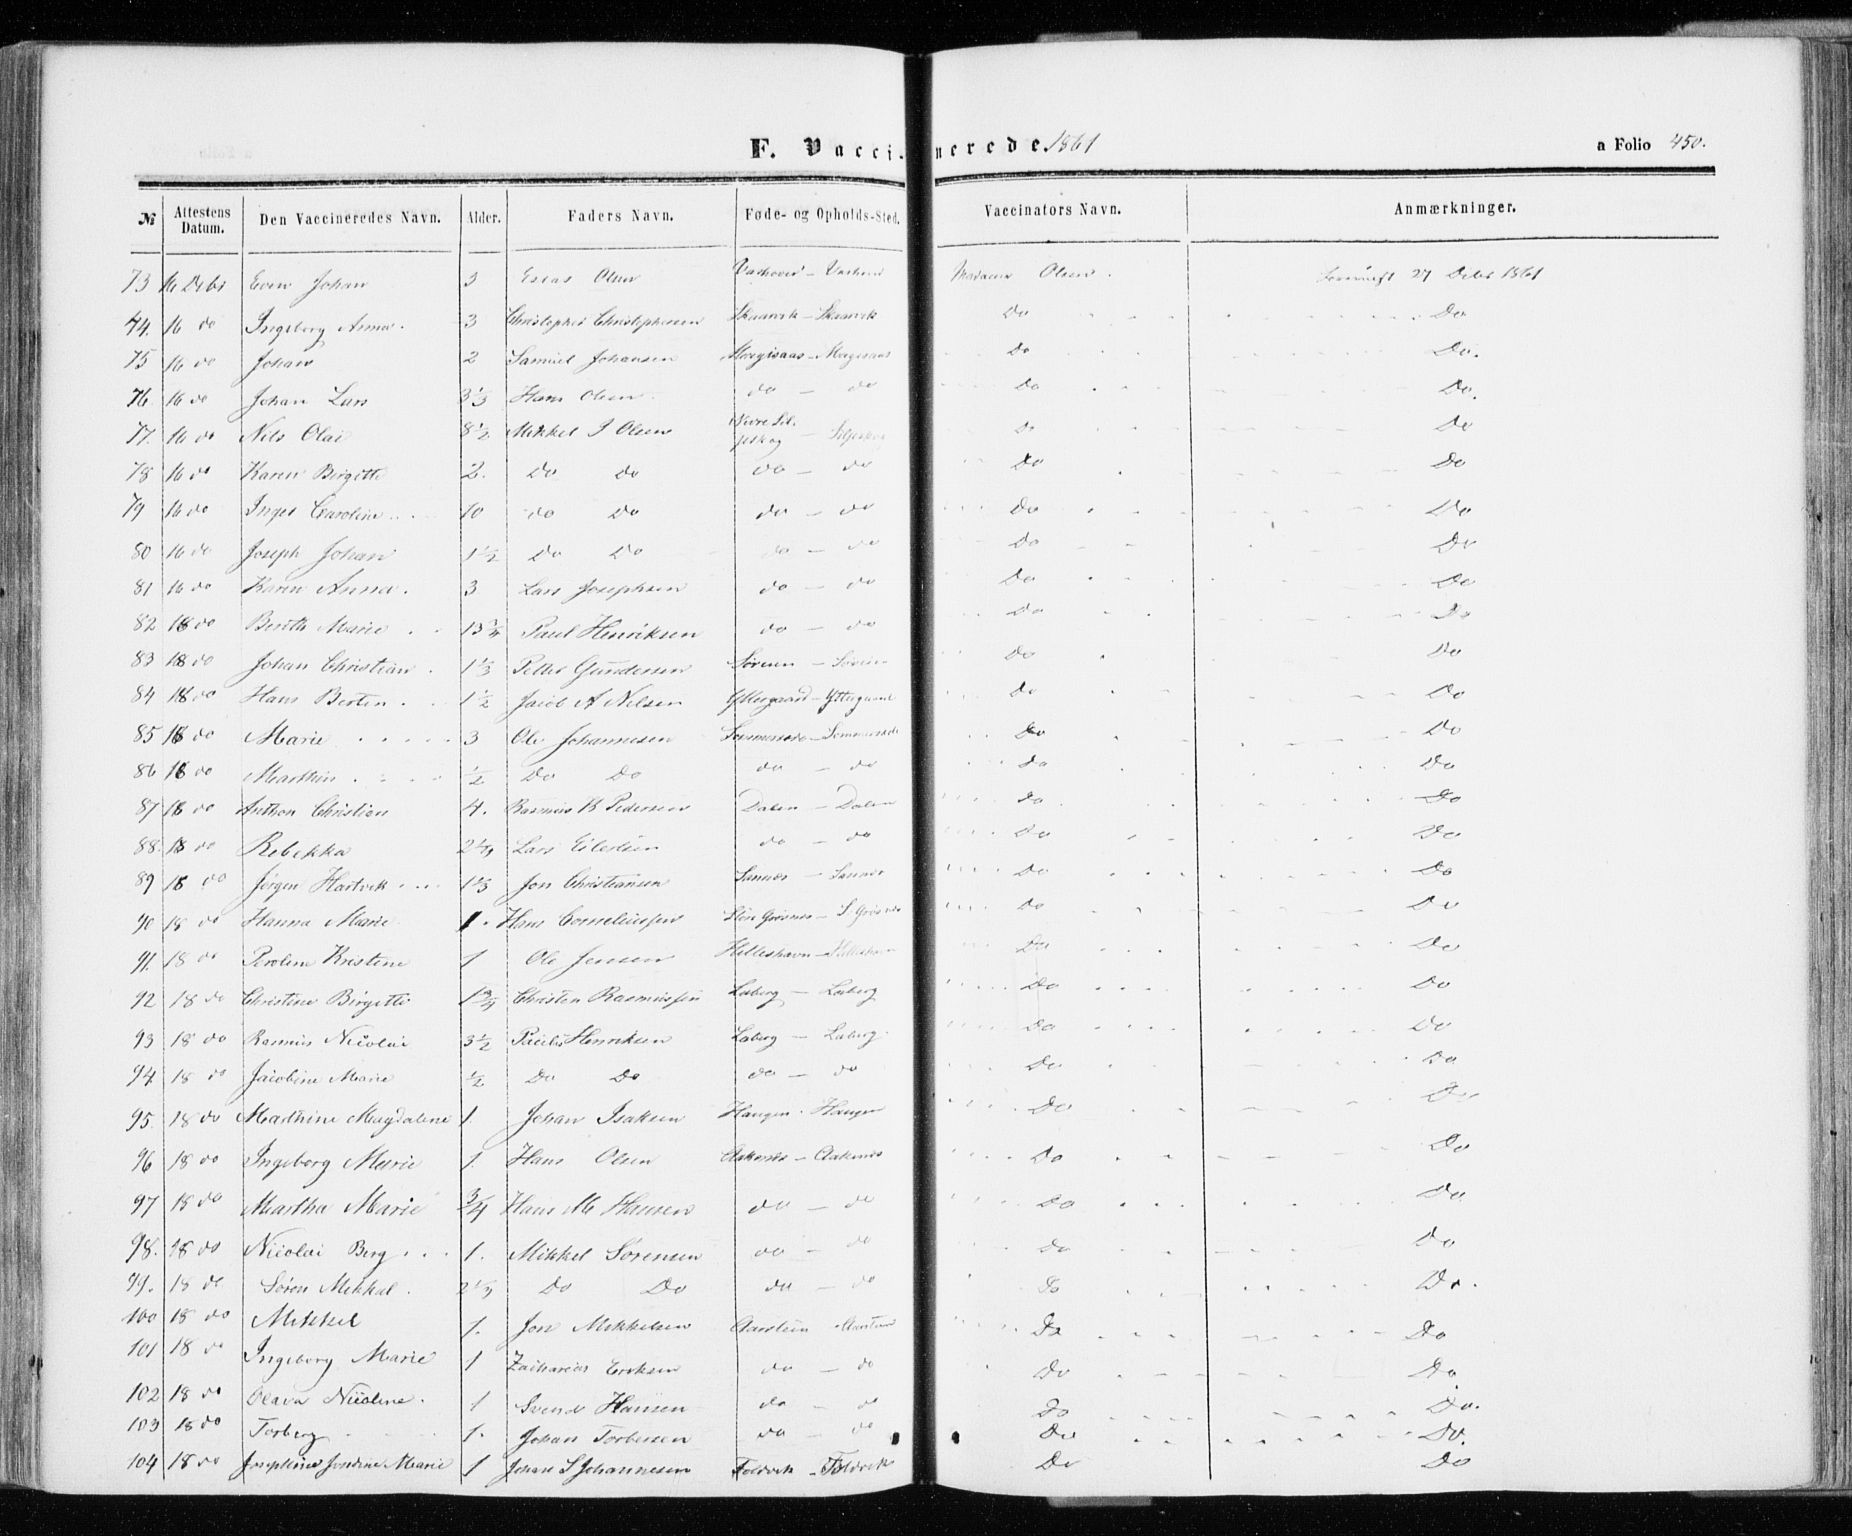 F. Vaccinerede 1861 a Folio 450.
№ Attestens Datum. Den Vaccineredes Navn. Alder. Faders Navn. Føde- og Opholds-Sted. Vaccinators Navn. Anmærkninger.
73 16 Debr Even Johan 3 Esias Olsen Madame Olsen. 27 Debr 1861
74. 16 do Ingeborg Anna. 3 Christopher Christophersen Skaarvik - Skaarvik Do Do
75 16 do Johan 2 Samuel Johansen Do Do.
76 16 do Johan Lars 3 1/3 Hans Olsen do - do Do Do.
77. 16 do Nils Olai 8 1/2 Mikkel J Olsen Do Do
78 16 do Karen Birgitte 2. Do Do do - do Do Do
79 16 do Inger Caroline 10 do Do do - do Do Do
80 16 do Joseph Johan 1 1/2 Do Do do - do Do Do
81 16 do Karen Anna. 3 Lars Josephsen do - do Do Do
82 18 do Berith Marie 13 3/4 Paul Henriksen do - do Do Do
83 18 do Johan Christian. 1 1/3 Petter Gundersen Sørreen - Sørreen Do Do
84 18 do Hans Berten. 1 1/2 Jacob A Nilsen Yttergaard - Yttergaard Do Do
85 18 do Marie 3 Ole Johannesen Sommersæde - Sommersæde Do Do
86 18 do Marthin 1/2 Do Do do - do Do Do
87 18 do Anthon Christian 4. Rasmus K Pedersen Dalen - Dalen Do Do
88. 18 do Rebekka 2 1/4 Lars Eilertsen do - do Do Do
89 18 do Jørgen Hartvik 1 1/3 Jon Christiansen Sannes - Sannes Do Do
90 18 do Hanna Marie 1. Hans Corneliussen Store Grøsnes - S. Grøsnes Do Do
91. 18 do Peroline Kristine 1 Ole Jensen Hilleshavn - Hilleshavn Do Do
92 18 do Christine Birgitte 1 3/4 Christen Rasmussen Laberg - Laberg Do Do
93 18 do Rasmus Nicolai 3 1/2 Paulus Henriksen Laberg - Laberg. Do Do
94 18 do Jacobine Marie 1/2 Do Do do - do Do Do
95. 18 do Marthine Magdalene 1. Johan Isaksen Haugen - Haugen Do Do
96 18 do Ingeborg Marie 1. Hans Olsen Aakenes - Aakenes Do Do
97 18 do Martha Marie 3/4 Hans M Hansen do - do Do Do
98. 18 do Nicolai Berg 1. Mikkel Sørensen do - do Do Do
99. 18 do Søren Mikkal. 2 1/3 Do Do do - do Do Do.
100 18 do Mikkel 1. Jon Mikkelsen Aarstein - Aarstein Do Do
101 18 do Ingeborg Marie 1 Zacharias Eriksen do - do Do Do
102 18 do Olava Nicoline. 1 Svend Hansen do - do Do Do.
103 18 do Torberg 1. Johan Torbersen do - do Do Do.
104 18 do Josephine Jondine Marie 1 Johan S Johannesen Foldvik - Foldvik Do Do